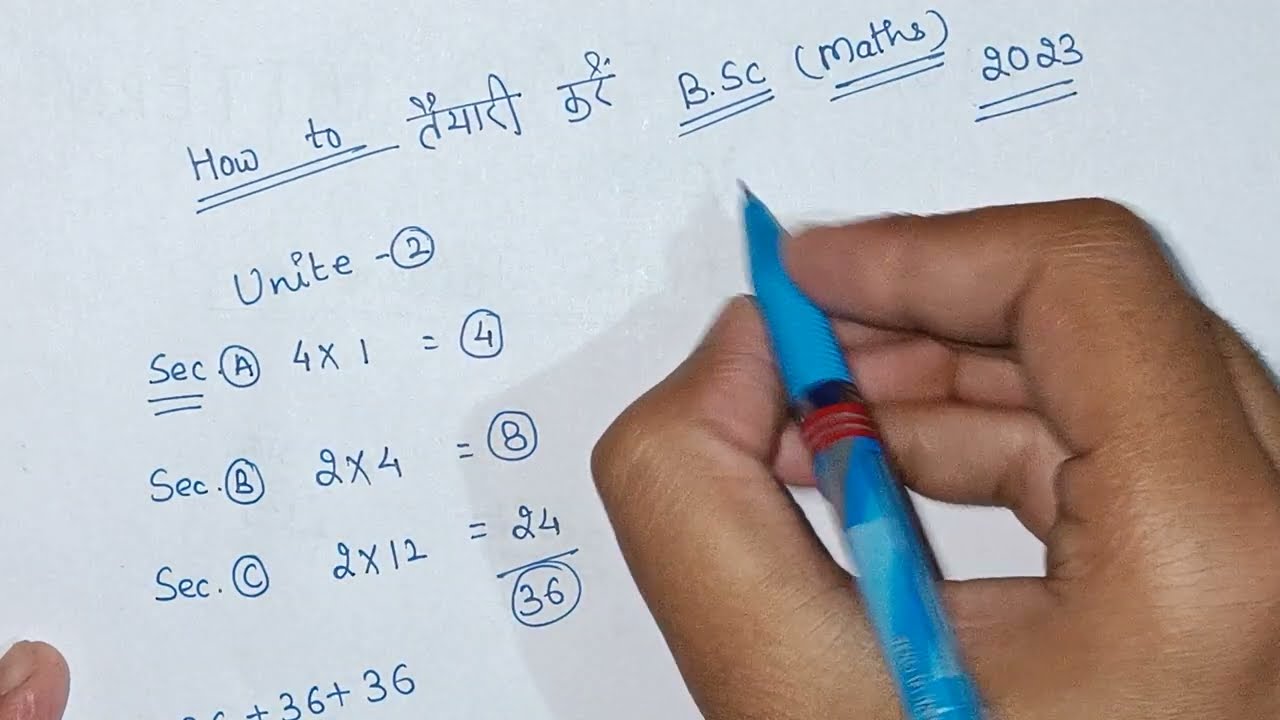 How to तैयारी करें B.Sc (Maths) 2023
Unite - 2
Sec. A 4x1 = 4
Sec. B 2x4 = 8
Sec. C 2x12 = 24
36
+36+36